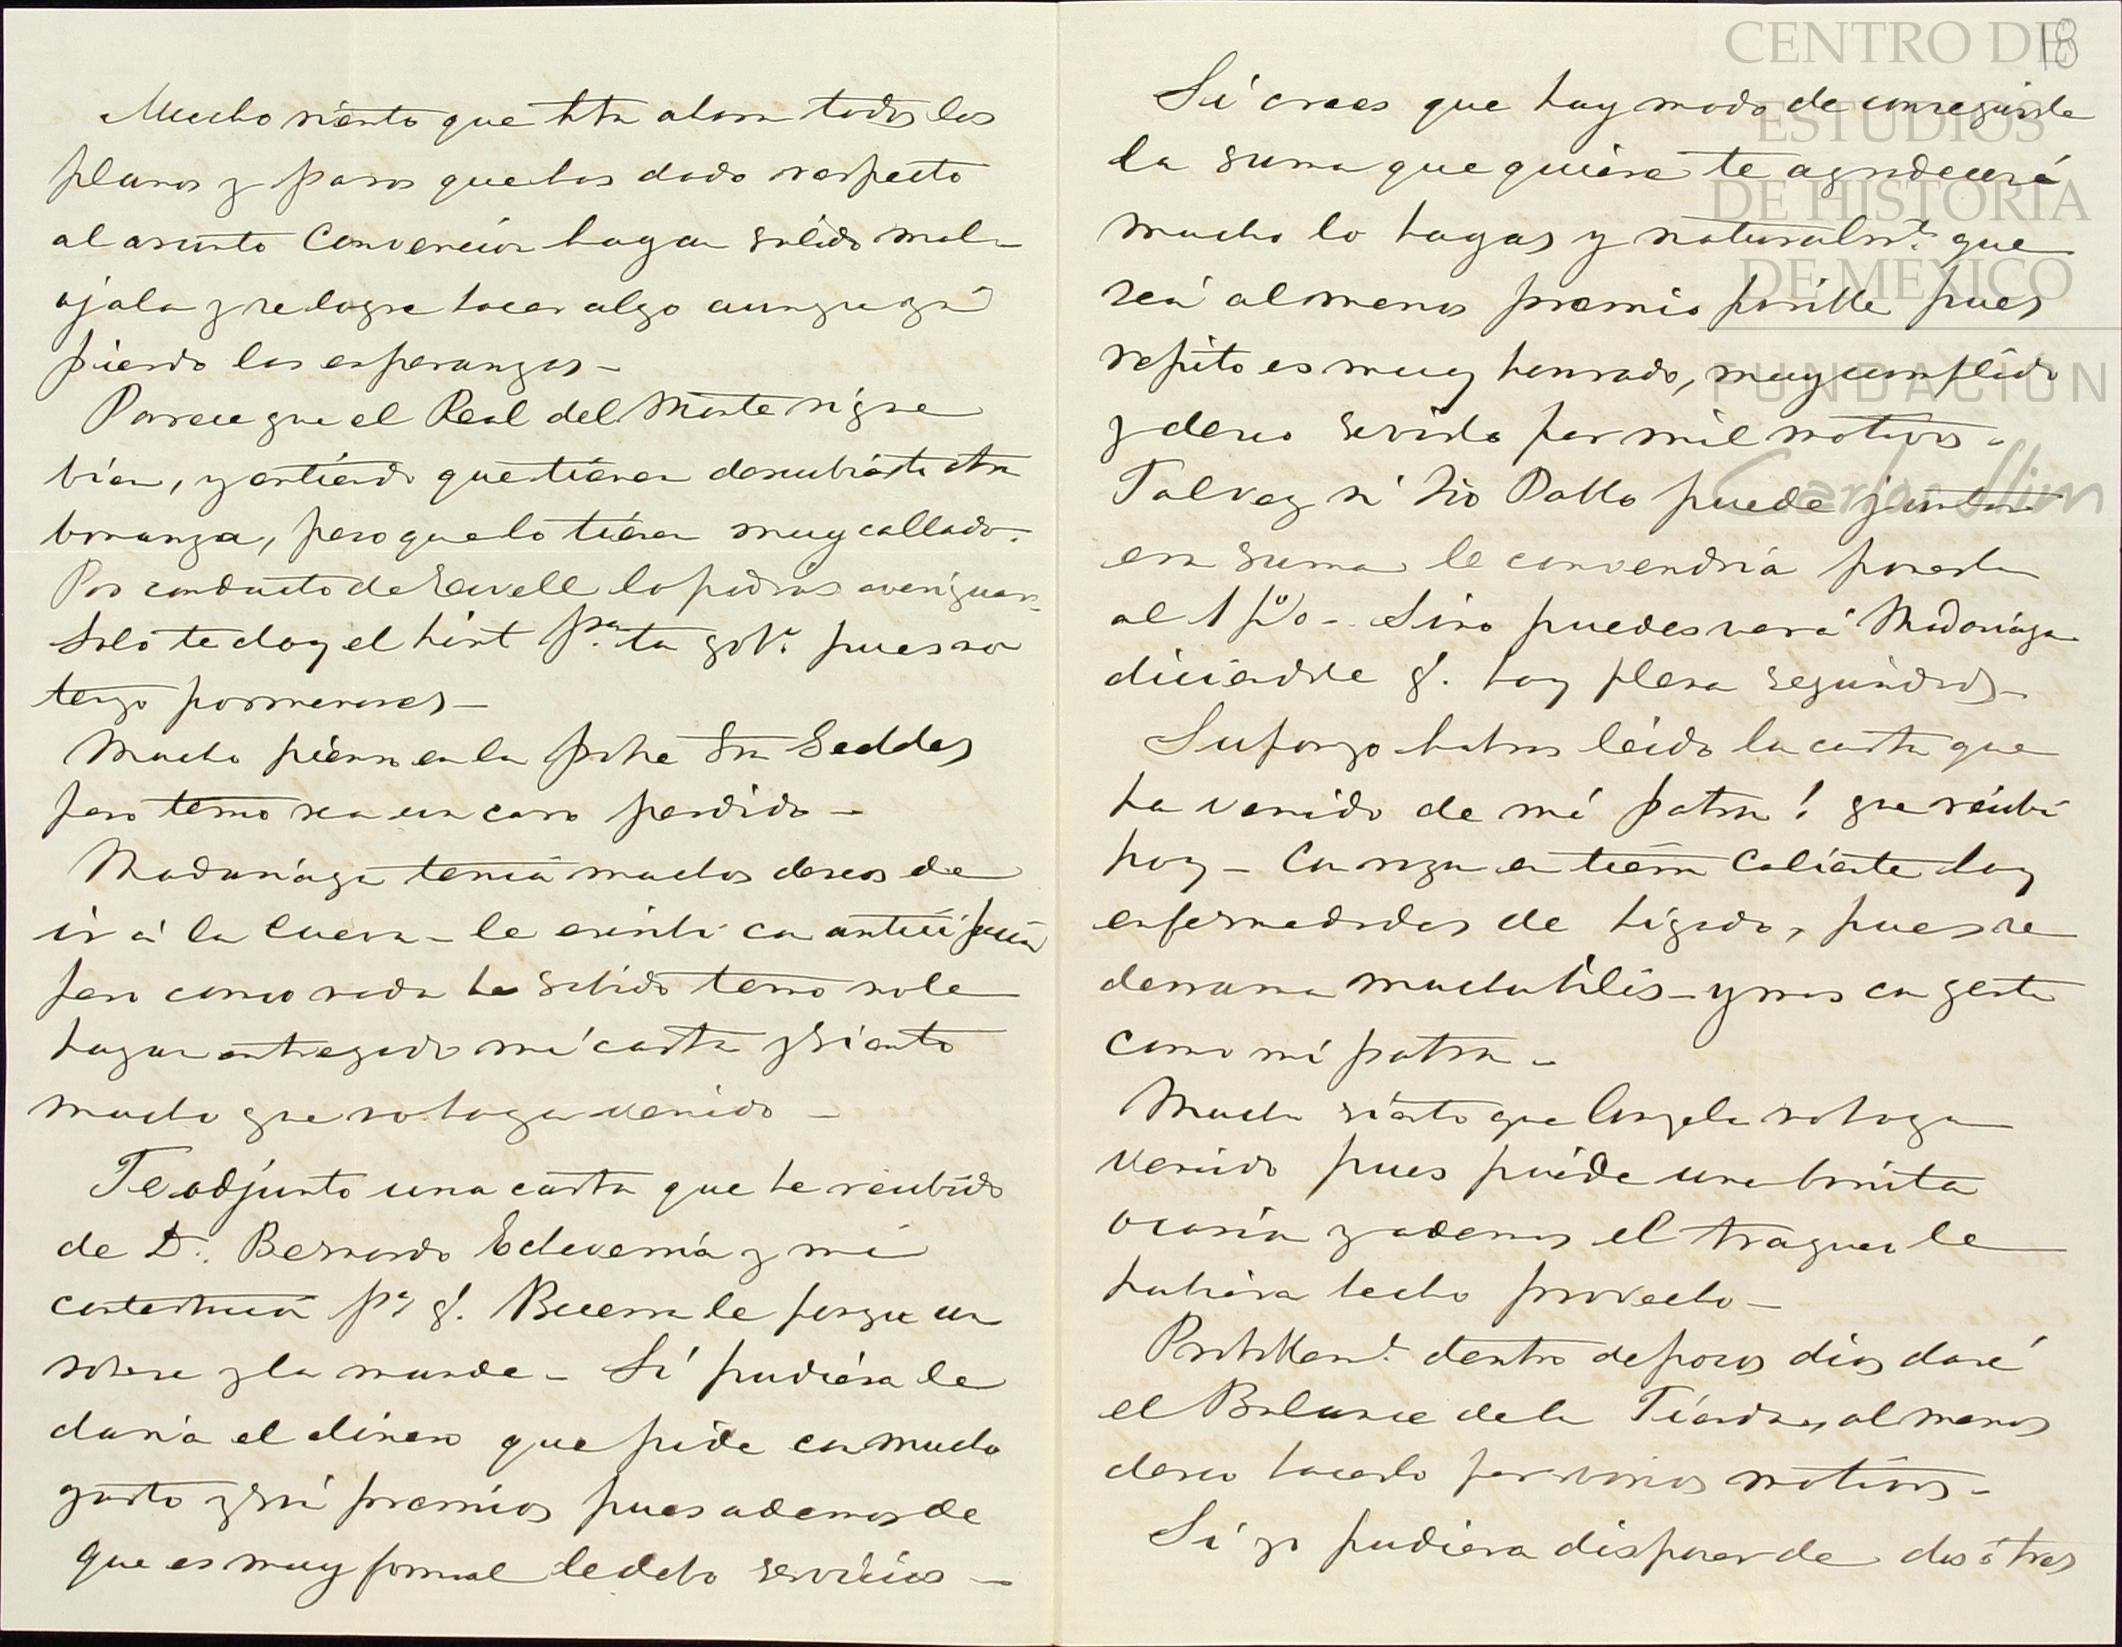 Mucho siento que hta ahora todos los
planos y pasos que has dado respecto
al asunto Convencion hayan salido mal -
ojala y se logre hacer algo aunque ya
pierdo las esperanzas -
Parece que el Real del Monte sigue
bien, y entiendo que tienen descubierta otra
bonanza, pero que lo tienen muy callado.
Por conducto de Sewell lo podras averiguar -
Solo te doy el hint pa. tu gobo. pues no
tengo pormenores -
Mucho pienso en la pobre Sra Geddes
pero temo sea un caso perdido -
Madariaga tenia muchos deseos de
ir á la Cueva - le escribi con anticipacion
pero como nada he sabido temo no le
hayan entregado mi carta y siento
mucho que no haya venido -
Te adjunto una carta que he recibido
de D. Bernardo Echeverria y mi
contestacion pa. q. Becerra le ponga un
sobre y la mande - Si pudiera le
daria el dinero que pide con mucho
gusto y sin premios pues ademas de
que es muy formal le debo servicios -
18
Si crees que hay modo de conseguirle
la suma que quiere te agradeceré
mucho lo hagas y naturalmte. que
sea al menos premio posible pues
repito es muy honrado, muy cumplido
y deseo servirlo por mil motivos -
Talvez si Tio Pablo puede juntar
esa suma le convendria ponerla
al 1 p% - Sino puedes ver á Madariaga
diciendole q. hay plena seguridad -
Supongo habras leido la carta que
ha venido de mi patron! que recibi
hoy - Con razon en tierra Caliente hay
enfermedades de higado, pues se
derrama mucha bilis - y mas con gente
como mi patron -
Mucho siento que Angela no haya
venido pues pierde una bonita
ocasion y ademas el
hubiera hecho provecho -
Probblemte. dentro de pocos dias daré
el Balance de la Tienda, al menos
deseo hacerlo por varios motivos -
Si yo pudiera disponer de dos ó tres
CENTRO DE
ESTUDIOS
DE HISTORIA
DE MÉXICO
FUNDACIÓN
Carlos Slim